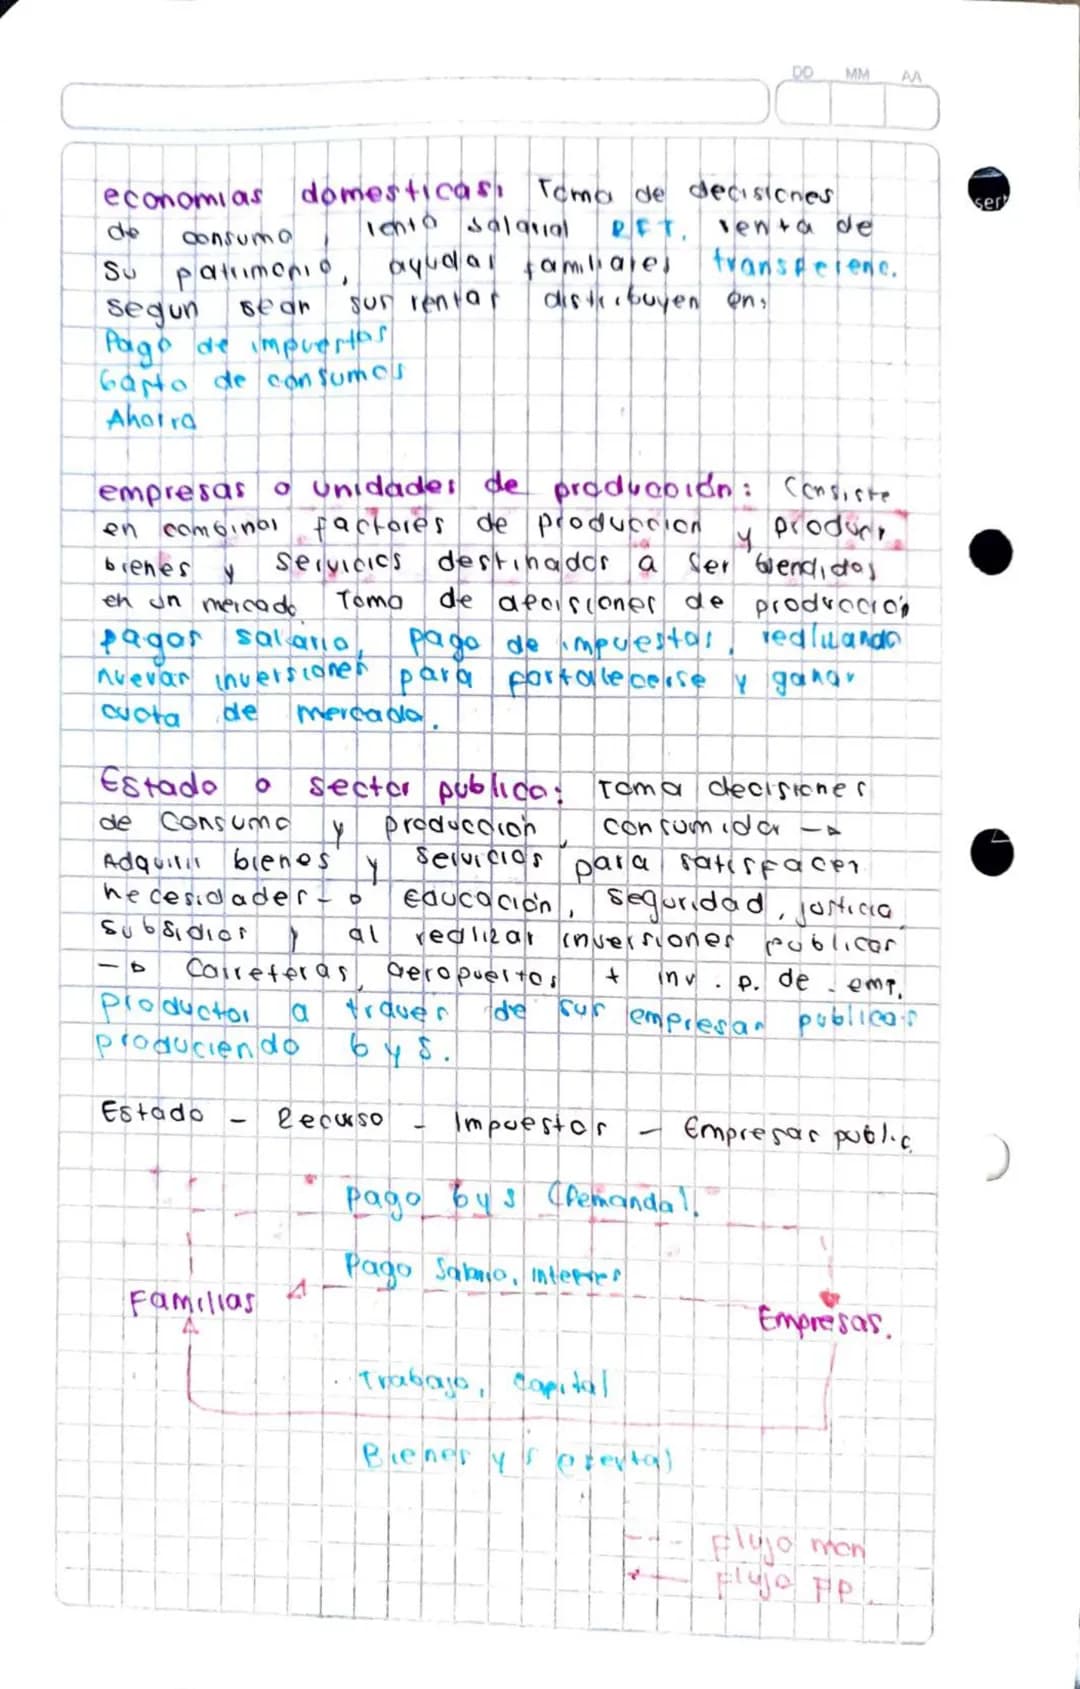 DD MM AA
economias domesticas: Toma de decisiones
de consumo, renta salarial RFT. renta de
su patrimonio, ayudas familiares transferenc.
segun sean sus rentas distribuyen en:
Pago de impuestos
Gasto de consumos
Ahorro
empresas o unidades de producción: Consiste
en combinar factores de produccion y producir
bienes y servicios destinados a ser vendidos
en un mercado Toma de decisiones de producción
pagos salario, pago de impuestos, realizando
nuevas inversiones para fortalecerse y ganar
cuota de mercado.
Estado o sector publico: Toma decisiones
de consumo y producción, consumidor →
Adquirir bienes y servicios para satisfacer
necesidades → Educación, seguridad, justicia
subsidios y al realizar inversiones publicas
→ Carreteras, aeropuertos + inv. p. de emp.
productor a traves de sus empresas publicas
produciendo b y s.
Estado - Recurso - Impuestos - Empresas public.
pago b y s (Demanda).
Pago Salario, interes
Familias
Empresas.
Trabajo, Capital
Bienes y s oferta)
Flujo mon
Flujo FP.